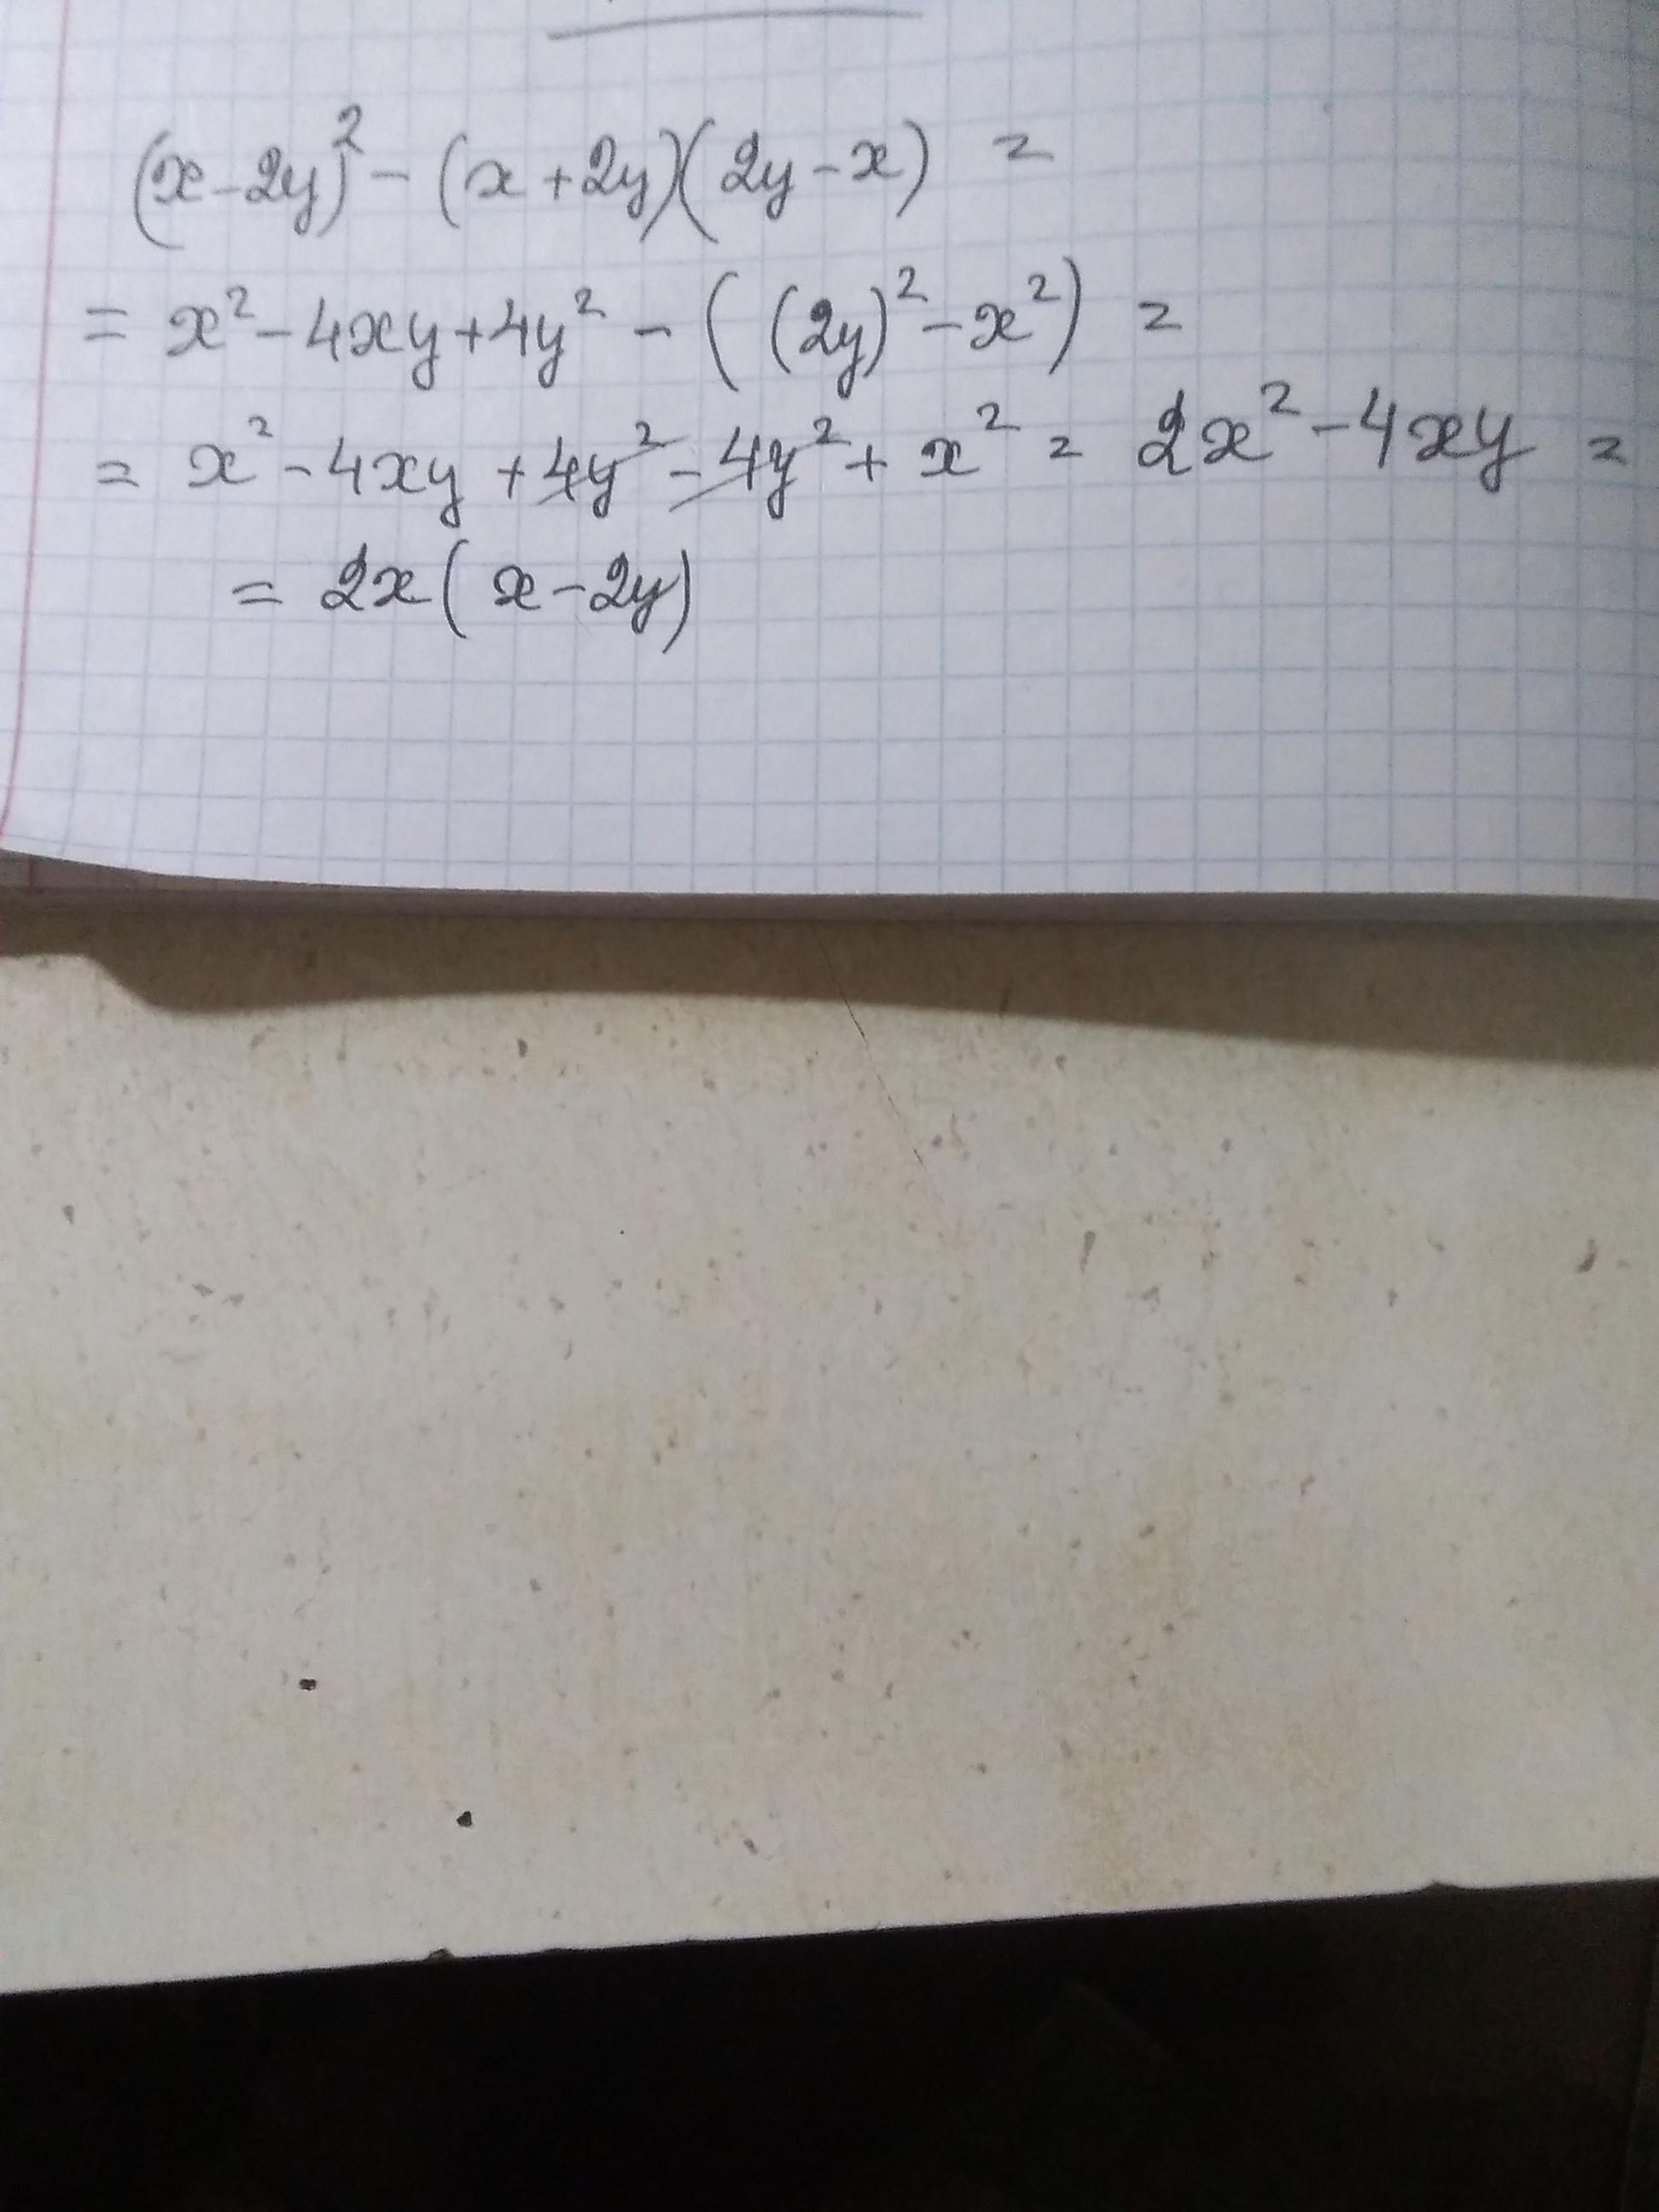 (x-2y)² - (x+2y)(2y-x) =
= x² - 4xy + 4y² - ((2y)² - x²) =
= x² - 4xy + 4y² - 4y² + x² = 2x² - 4xy =
= 2x(x-2y)